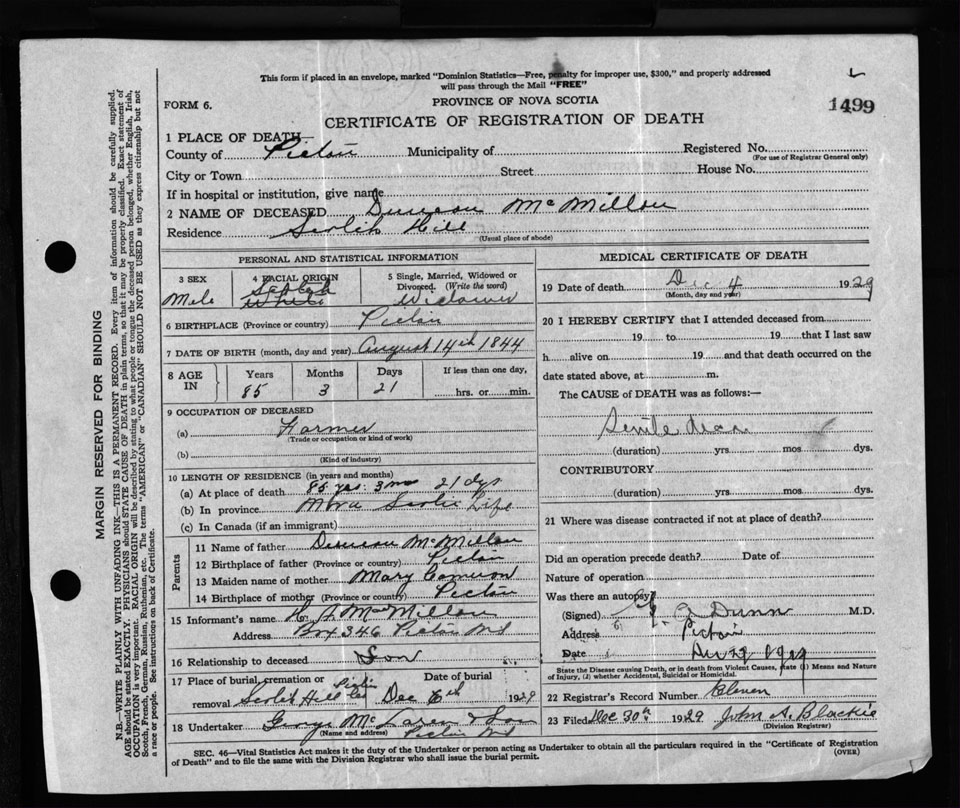 This form if placed in an envelope, marked "Dominion Statistics—Free, penalty for improper use, $300," and properly addressed
will pass through the Mail "FREE"
FORM 6.
PROVINCE OF NOVA SCOTIA
1499
CERTIFICATE OF REGISTRATION OF DEATH
1 PLACE OF DEATH
County of Pictou Municipality of Registered No.
(For use of Registrar General only)
City or Town Street House No.
If in hospital or institution, give name
2 NAME OF DECEASED Duncan McMillan
Residence Scotch Hill
(Usual place of abode)
PERSONAL AND STATISTICAL INFORMATION
3 SEX 4 RACIAL ORIGIN 5 Single, Married, Widowed or Divorced. (Write the word)
Male Scotch White Widower
6 BIRTHPLACE (Province or country) Pictou
7 DATE OF BIRTH (month, day and year) August 14th 1844
8 AGE IN Years Months Days If less than one day,
85 3 21 hrs. or min.
9 OCCUPATION OF DECEASED
(a) Farmer
(Trade or occupation or kind of work)
(b)
(Kind of industry)
10 LENGTH OF RESIDENCE (in years and months)
(a) At place of death 85 yrs. 3 mo 21 dys
(b) In province Nova Scotia Life
(c) In Canada (if an immigrant)
Parents
11 Name of father Duncan McMillan
12 Birthplace of father (Province or country) Pictou
13 Maiden name of mother Mary Cameron
14 Birthplace of mother (Province or country) Pictou
15 Informant's name H. A. MacMillan
Address Box 346 Pictou N.S
16 Relationship to deceased Son
17 Place of burial, cremation or removal Date of burial
Scotch Hill Pictou Co Dec 6th 1929
18 Undertaker George McLaren & Son
(Name and address) Pictou N.S
MEDICAL CERTIFICATE OF DEATH
19 Date of death Dec 4 1929
(Month, day and year)
20 I HEREBY CERTIFY that I attended deceased from
19 to 19 that I last saw
h alive on 19 and that death occurred on the
date stated above, at m.
The CAUSE of DEATH was as follows:—
Senile
(duration) yrs. mos. dys.
CONTRIBUTORY
(duration) yrs. mos. dys.
21 Where was disease contracted if not at place of death?
Did an operation precede death? Date of
Nature of operation
Was there an autopsy
(Signed) Dunn M.D.
Address Pictou
Date
State the Disease causing Death, or in death from Violent Causes, state (1) Means and Nature
of Injury, (2) whether Accidental, Suicidal or Homicidal.
22 Registrar's Record Number Eleven
23 Filed Dec 30th 1929 John A. Blackie
(Division Registrar)
SEC. 46—Vital Statistics Act makes it the duty of the Undertaker or person acting as Undertaker to obtain all the particulars required in the "Certificate of Registration
of Death" and to file the same with the Division Registrar who shall issue the burial permit.
(OVER)
MARGIN RESERVED FOR BINDING
N.B.—WRITE PLAINLY WITH UNFADING INK—THIS IS A PERMANENT RECORD. Every item of information should be carefully supplied.
AGE should be stated EXACTLY. PHYSICIANS should STATE CAUSE OF DEATH in plain terms, so that it may be properly classified. Exact statement of
OCCUPATION is very important. RACIAL ORIGIN will be described by stating to what people or tongue the deceased person belonged, whether English, Irish,
Scotch, French, German, Russian, Ruthenian, etc. The terms "AMERICAN" or "CANADIAN" SHOULD NOT BE USED as they express citizenship but not
a race or people. See instructions on back of Certificate.